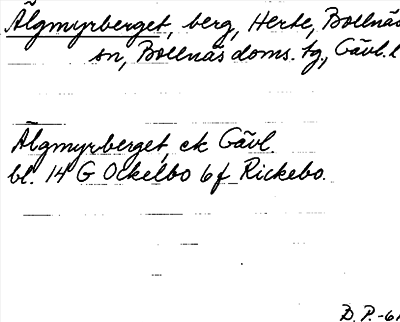 Älgmyrberget, berg, Herte, Bollnäs
sn, Bollnäs doms. tg, Gävl. l
Älgmyrberget, ek Gävl.
bl. 14 G Ockelbo 6f Rickebo.
D. P. -61